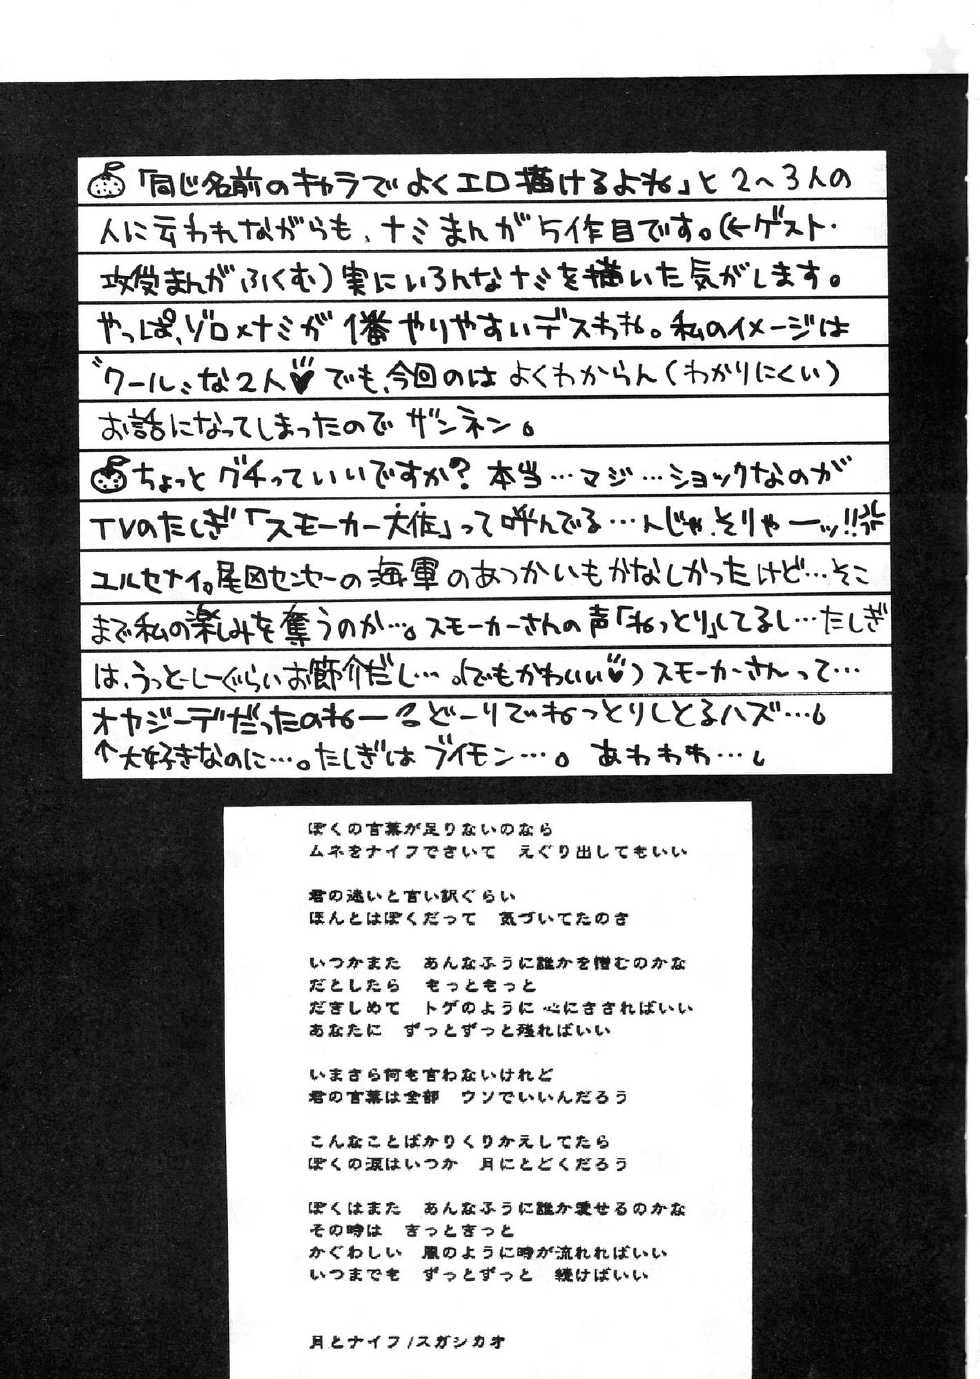 「同じ名前のキャラでよくエロ描けるよね」と2〜3人の
人に云われながらも、ナミまんが5作目です。(←ゲスト・
攻受まんがふくむ)実にいろんなナミを描いた気がします。
やっぱ、ゾロ×ナミが1番やりやすいデスわね。私のイメージは
〝クール〟な2人♥でも、今回のはよくわからん(わかりにくい)
お話になってしまったのでザンネン。
ちょっとグチっていいですか?本当…マジ…ショックなのが
TVのたしぎ「スモーカー大佐」って呼んでる…んじゃ、そりゃーッ!!
ユルセナイ。尾田センセーの海軍のあつかいもかなしかったけど…そこ
まで私の楽しみを奪うのか…。スモーカーさんの声「ねっとり」してるし…たしぎ
は、うっとーしーぐらいお節介だし…。(でもかわいい♥)スモーカーさんって…
オヤジーデだったのねーどーりでねっとりしとるハズ…。
↑大好きなのに…。たしぎはブイモン…。あわわわ…。
ぼくの言葉が足りないのなら
ムネをナイフでさいて　えぐり出してもいい
君の迷いと言い訳ぐらい
ほんとはぼくだって　気づいてたのさ
いつかまた　あんなふうに誰かを憎むのかな
だとしたら　もっともっと
だきしめて　トゲのように 心にささればいい
あなたに　ずっとずっと残ればいい
いまさら何も言わないけれど
君の言葉は全部　ウソでいいんだろう
こんなことばかりくりかえしてたら
ぼくの涙はいつか　月にとどくだろう
ぼくはまた　あんなふうに誰か愛せるのかな
その時は　きっときっと
かぐわしい　風のように時が流れればいい
いつまでも　ずっとずっと　続けばいい
月とナイフ/スガシカオ